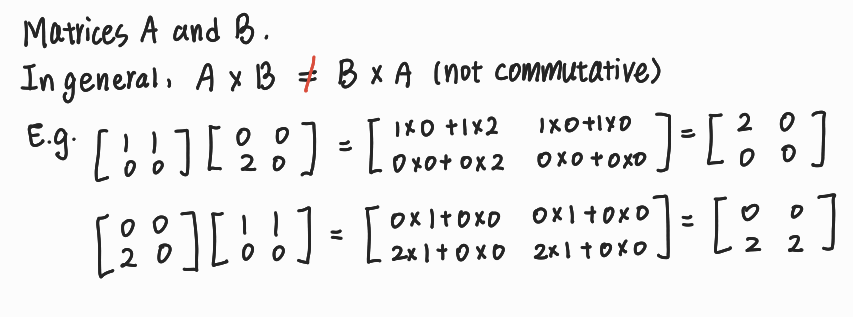 Matrices A and B.
In general, A x B ≠ B x A (not commutative)
E.g. [1 1; 0 0] [0 0; 2 0] = [1x0 +1x2 1x0+1x0; 0x0+ 0x2 0x0+0x0] = [2 0; 0 0]
[0 0; 2 0] [1 1; 0 0] = [0x1+0x0 0x1+0x0; 2x1+0x0 2x1+0x0] = [0 0; 2 2]